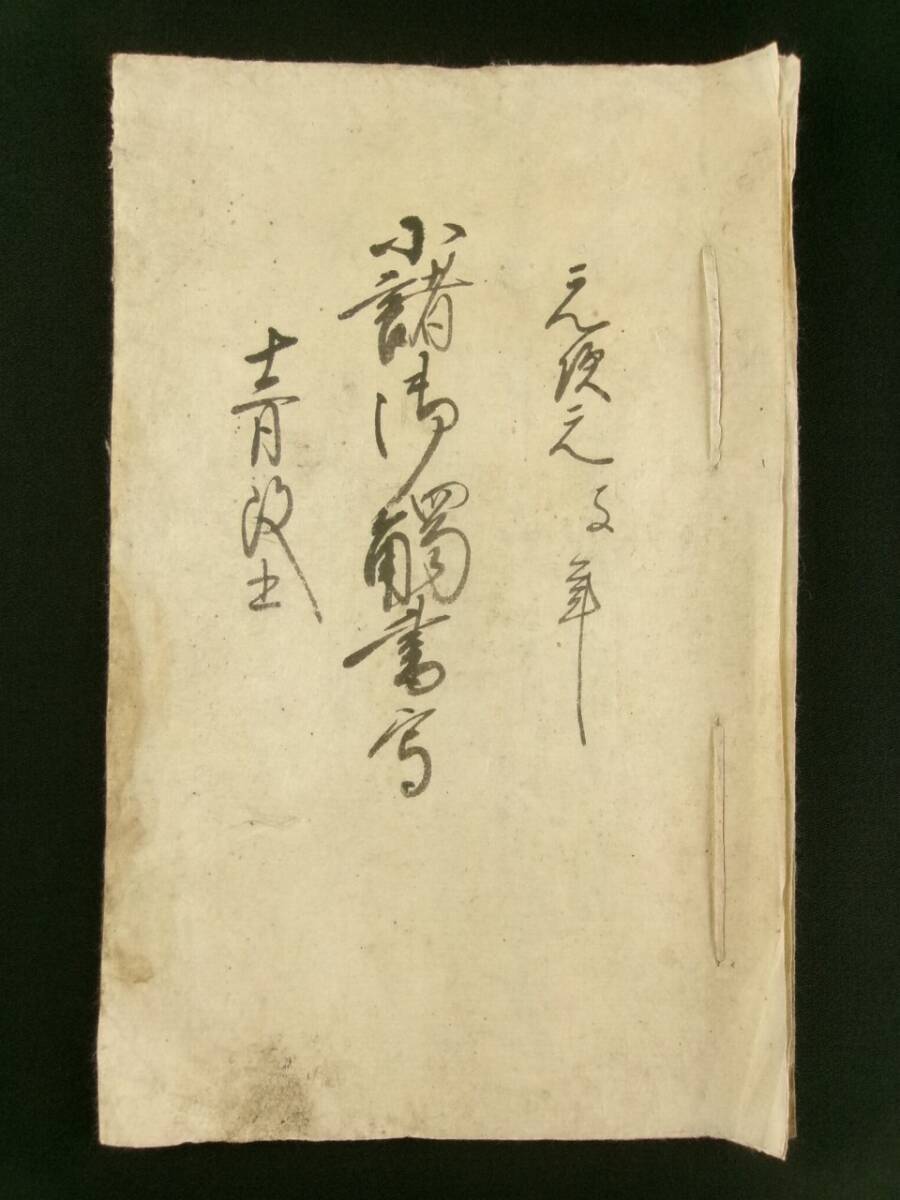 元治元子年
小諸御觸書写
十二月改之